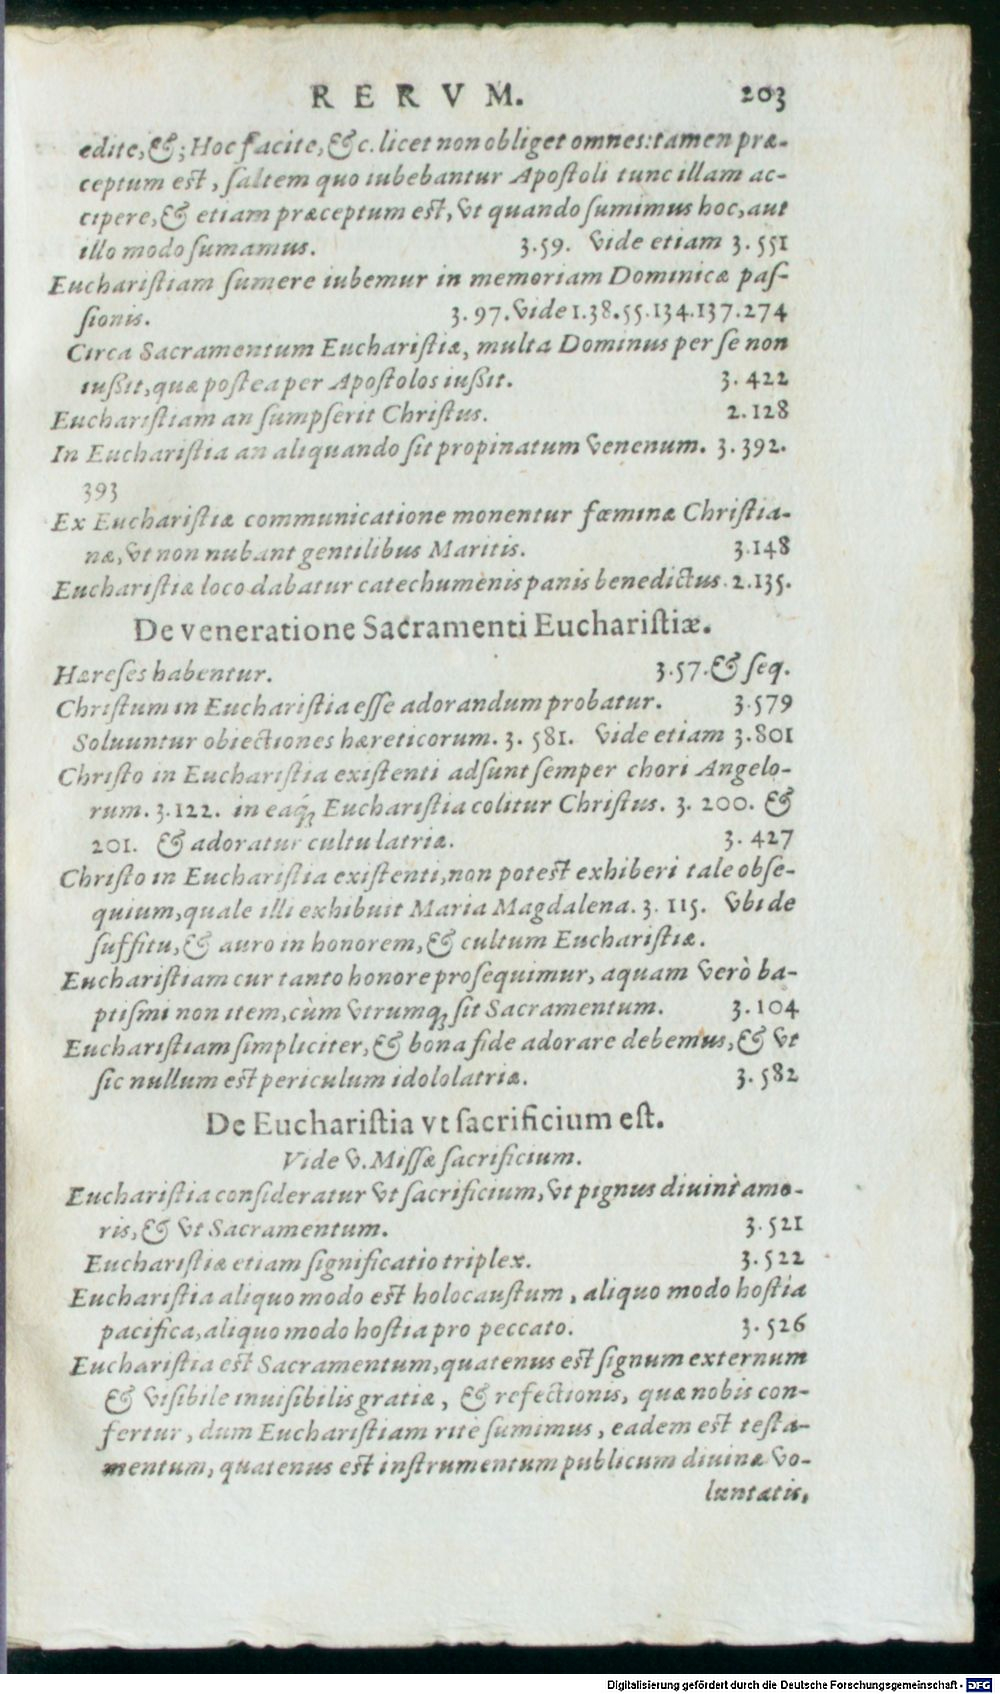 RERVM. 203
edite, &; Hoc facite, &c. licet non obliget omnes: tamen præ-
ceptum est, saltem quo iubebantur Apostoli tunc illam ac-
cipere, & etiam præceptum est, vt quando sumimus hoc, aut
illo modo sumamus. 3.59. Vide etiam 3.551
Eucharistiam sumere iubemur in memoriam Dominicæ pas-
sionis. 3.97. Vide 1.38.55.134.137.274
Circa Sacramentum Eucharistiæ, multa Dominus per se non
iußit, quæ postea per Apostolos iußit. 3.422
Eucharistiam an sumpserit Christus. 2.128
In Eucharistia an aliquando sit propinatum venenum. 3.392.
393
Ex Eucharistiæ communicatione monentur fœminæ Christia-
næ, vt non nubant gentilibus Maritis. 3.148
Eucharistiæ loco dabatur catechumenis panis benedictus. 2.135.
De veneratione Sacramenti Eucharistiæ.
Hæreses habentur. 3.57. & seq.
Christum in Eucharistia esse adorandum probatur. 3.579
Soluuntur obiectiones hæreticorum. 3.581. Vide etiam 3.801
Christo in Eucharistia existenti adsunt semper chori Angelo-
rum. 3.122. in eaq́; Eucharistia colitur Christus. 3.200. &
201. & adoratur cultu latriæ. 3.427
Christo in Eucharistia existenti, non potest exhiberi tale obse-
quium, quale illi exhibuit Maria Magdalena. 3.115. Vbi de
suffitu, & auro in honorem, & cultum Eucharistiæ.
Eucharistiam cur tanto honore prosequimur, aquam verò ba-
ptismi non item, cùm vtrumq; sit Sacramentum. 3.104
Eucharistiam simpliciter, & bona fide adorare debemus, & vt
sic nullum est periculum idololatriæ. 3.582
De Eucharistia vt sacrificium est.
Vide v. Missæ sacrificium.
Eucharistia consideratur vt sacrificium, vt pignus diuini amo-
ris, & vt Sacramentum. 3.521
Eucharistiæ etiam significatio triplex. 3.522
Eucharistia aliquo modo est holocaustum, aliquo modo hostia
pacifica, aliquo modo hostia pro peccato. 3.526
Eucharistia est Sacramentum, quatenus est signum externum
& visibile inuisibilis gratiæ, & refectionis, quæ nobis con-
fertur, dum Eucharistiam ritè sumimus, eadem est testa-
mentum, quatenus est instrumentum publicum diuinæ vo-
luntatis,
Digitalisierung gefördert durch die Deutsche Forschungsgemeinschaft - DFG